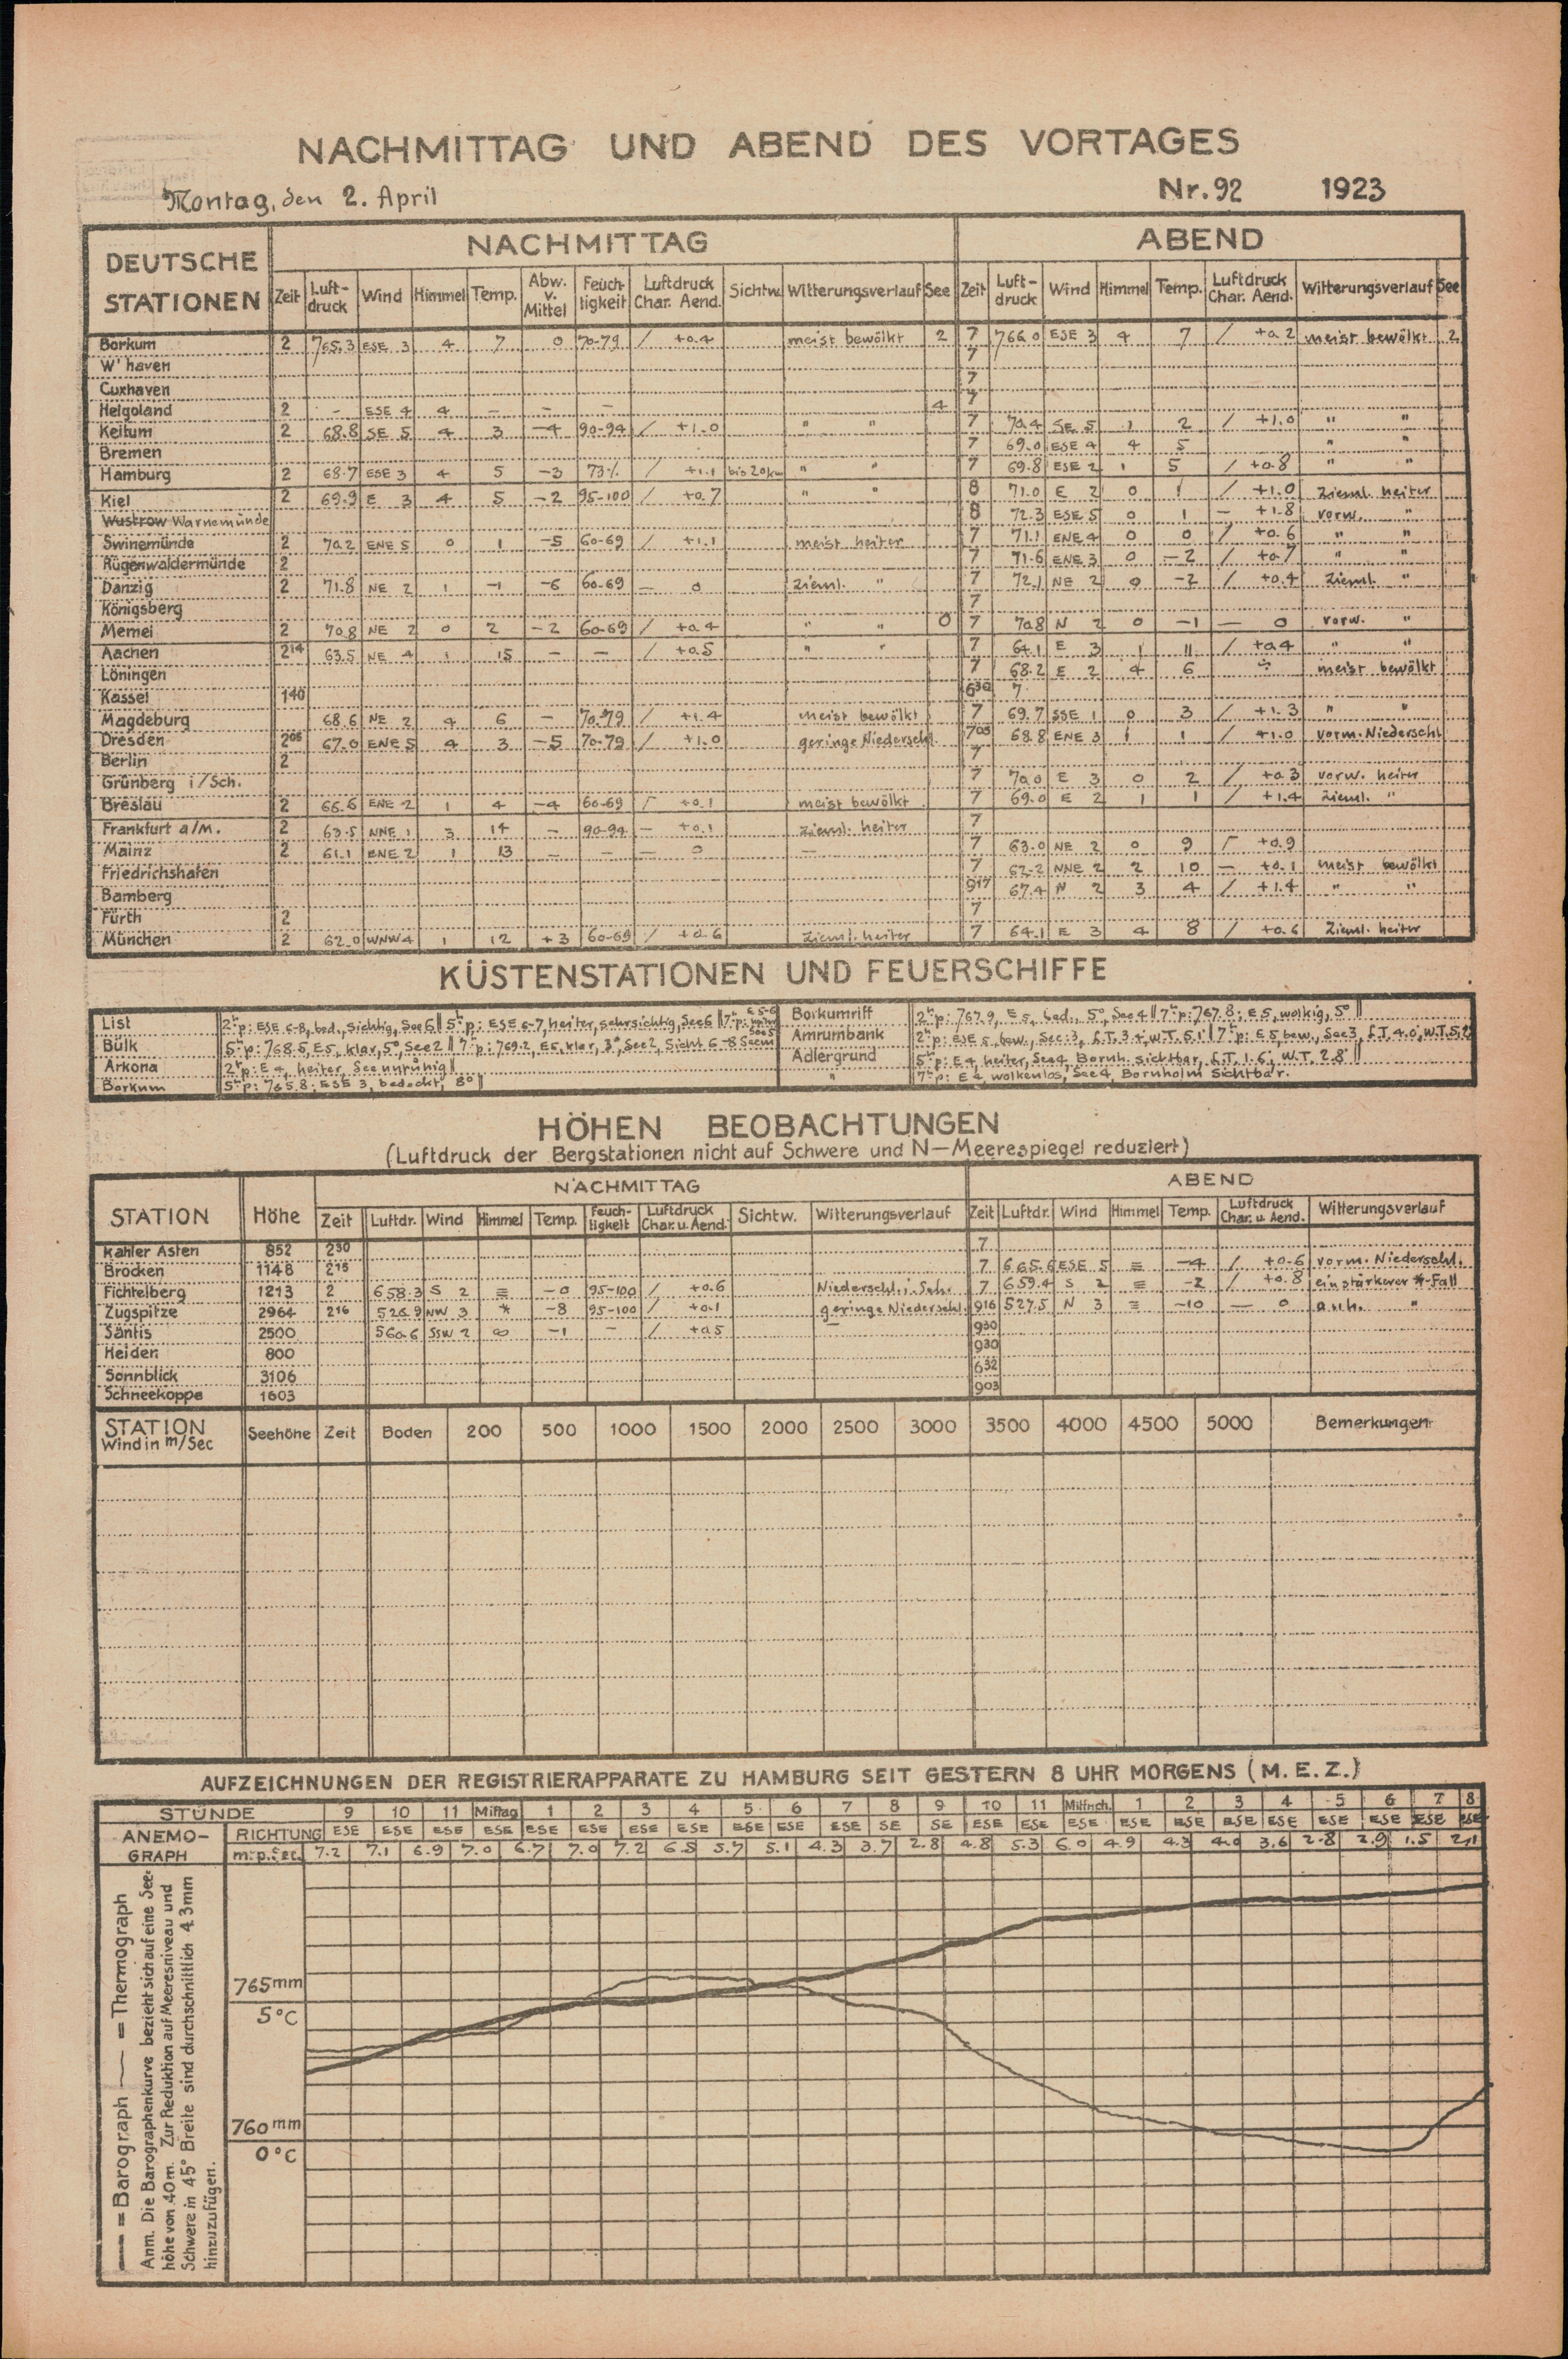 NACHMITTAG UND ABEND DES VORTAGES
Montag, den 2. April Nr. 92 1923
DEUTSCHE STATIONEN NACHMITTAG ABEND
Zeit Luft-druck Wind Himmel Temp. Abw. v. Mittel Feuch-tigkeit Luftdruck Char. Aend. Sichtw. Witterungsverlauf See Zeit Luft-druck Wind Himmel Temp. Luftdruck Char. Aend. Witterungsverlauf See
Borkum 2 765.3 ESE 3 4 7 0 70-79 / +0.4 meist bewölkt 2 7 766.0 ESE 3 4 7 / +0.2 meist bewölkt 2
W'haven 7
Cuxhaven 7
Helgoland 2 - ESE 4 4 - - - 4 7
Keitum 2 68.8 SE 5 4 3 -4 90-94 / +1.0 " " 7 70.4 SE 5 1 2 / +1.0 " "
Bremen 7 69.0 ESE 4 4 5 " "
Hamburg 2 68.7 ESE 3 4 5 -3 73% / +1.1 bis 20km " " 7 69.8 ESE 2 1 5 / +0.8 " "
Kiel 2 69.9 E 3 4 5 -2 95-100 / +0.7 " " 8 71.0 E 2 0 1 / +1.0 Zieml. heiter
Wustrow Warnemünde 8 72.3 ESE 5 0 1 — +1.8 vorw. "
Swinemünde 2 70.2 ENE 5 0 1 -5 60-69 / +1.1 meist heiter 7 71.1 ENE 4 0 0 / +0.6 " "
Rügenwaldermünde 2 7 71.6 ENE 3 0 -2 / +0.7 " "
Danzig 2 71.8 NE 2 1 -1 -6 60-69 — 0 Zieml. " 7 72.1 NE 2 0 -2 / +0.4 Zieml. "
Königsberg 7
Memel 2 70.8 NE 2 0 2 -2 60-69 / +0.4 " " 0 7 70.8 N 2 0 -1 — 0 vorw. "
Aachen 2¹⁴ 63.5 NE 4 1 15 - - / +0.5 " " 7 64.1 E 3 1 11 / +0.4 " "
Löningen 7 68.2 E 2 4 6 meist bewölkt
Kassel 1⁴⁰ 6³⁰ 7
Magdeburg 68.6 NE 2 4 6 - 70-79 / +1.4 meist bewölkt 7 69.7 SSE 1 0 3 / +1.3 " "
Dresden 2⁰⁵ 67.0 ENE 5 4 3 -5 70-79 / +1.0 geringe Niederschl. 7⁰⁵ 68.8 ENE 3 1 1 / +1.0 vorm. Niederschl
Berlin 2 7
Grünberg i/Sch. 7 70.0 E 3 0 2 / +0.3 vorw. heiter
Breslau 2 66.6 ENE 2 1 4 -4 60-69 Γ +0.1 meist bewölkt 7 69.0 E 2 1 1 / +1.4 Zieml. "
Frankfurt a/M. 2 63.5 NNE 1 3 14 - 90-94 — +0.1 Zieml. heiter 7
Mainz 2 61.1 ENE 2 1 13 - - — 0 — 7 63.0 NE 2 0 9 Γ +0.9
Friedrichshafen 7 62.2 NNE 2 2 10 — +0.1 meist bewölkt
Bamberg 9¹⁷ 67.4 N 2 3 4 / +1.4 " "
Fürth 2 7
München 2 62.0 WNW 4 1 12 +3 60-69 / +0.6 Zieml. heiter 7 64.1 E 3 4 8 / +0.6 Zieml. heiter
KÜSTENSTATIONEN UND FEUERSCHIFFE
List 2ʰp: ESE 6-8, bed., sichtig, See 6 || 5ʰp: ESE 6-7, heiter, sehr sichtig, See 6 || 7ʰp:
Bülk 5ʰp: 768.5, E5, klar, 5°, See 2 || 7ʰp: 769.2, E5, klar, 3°, See 2, Sicht 6-8 Seem
Arkona 2ʰp: E4, heiter, See unruhig ||
Borkum 5ʰp: 765.8; ESE 3, bedeckt, 8° ||
Borkumriff 2ʰp: 767.9, E5, bed., 5°, See 4 || 7ʰp: 767.8; E5, wolkig, 5° ||
Amrumbank 2ʰp: ESE 5, bew., See: 3, L.T. 3.4, W.T. 5.1 || 7ʰp: E5 bew., See 3, L.T. 4.0, W.T. 5.2
Adlergrund 5ʰp: E4, heiter, See 4, Bornh. sichtbar, L.T. 1.6; W.T. 2.8 ||
" 7ʰp: E4, wolkenlos, See 4, Bornholm sichtbar.
HÖHEN BEOBACHTUNGEN
(Luftdruck der Bergstationen nicht auf Schwere und N—Meerespiegel reduziert)
STATION Höhe NACHMITTAG ABEND
Zeit Luftdr. Wind Himmel Temp. Feuch-tigkeit Luftdruck Char. u. Aend. Sichtw. Witterungsverlauf Zeit Luftdr. Wind Himmel Temp. Luftdruck Char. u. Aend. Witterungsverlauf
Kahler Asten 852 2³⁰ 7
Brocken 1148 2¹⁵ 7 665.6 ESE 5 ≡ -4 / +0.6 vorm. Niederschl.
Fichtelberg 1213 2 658.3 S 2 ≡ -0 95-100 / +0.6 Niederschl. i. Seh. 7 659.4 S 2 ≡ -2 / +0.8 ein stärkerer *-Fall
Zugspitze 2964 2¹⁶ 526.9 NW 3 * -8 95-100 / +0.1 geringe Niederschl. 9¹⁶ 527.5 N 3 ≡ -10 — 0 anh. "
Säntis 2500 560.6 SSW 2 ∞ -1 - / +0.5 — 9³⁰
Heiden 800 9³⁰
Sonnblick 3106 6³²
Schneekoppe 1603 9⁰³
STATION Wind in m/Sec Seehöhe Zeit Boden 200 500 1000 1500 2000 2500 3000 3500 4000 4500 5000 Bemerkungen
AUFZEICHNUNGEN DER REGISTRIERAPPARATE ZU HAMBURG SEIT GESTERN 8 UHR MORGENS (M.E.Z.)
STUNDE 9 10 11 Mittag 1 2 3 4 5 6 7 8 9 10 11 Mittnch. 1 2 3 4 5 6 7 8
ANEMO-GRAPH RICHTUNG ESE ESE ESE ESE ESE ESE ESE ESE ESE ESE ESE SE SE ESE ESE ESE ESE ESE ESE ESE ESE ESE ESE ESE
m. p. Sec. 7.2 7.1 6.9 7.0 6.7 7.0 7.2 6.5 5.7 5.1 4.3 3.7 2.8 4.8 5.3 6.0 4.9 4.3 4.0 3.6 2.8 2.9 1.5 2.1
— = Barograph — = Thermograph
Anm. Die Barographenkurve bezieht sich auf eine See-
höhe von 40m. Zur Reduktion auf Meeresniveau und
Schwere in 45° Breite sind durchschnittlich 4.3mm
hinzuzufügen.
765mm
5°C
760mm
0°C